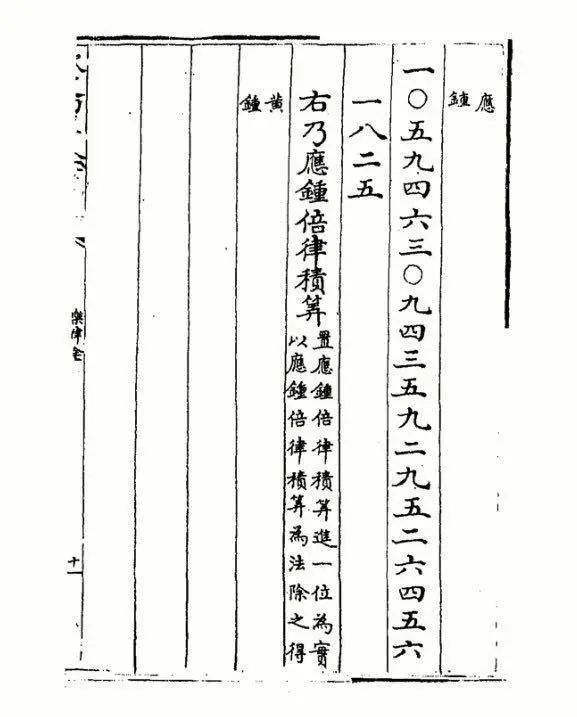 應鍾
一〇五九四六三〇九四三五九二九五二六四五六
一八二五
右乃應鍾倍律積筭
置應鍾倍律積筭進一位為實
以應鍾倍律積筭為法除之得
黃鍾
樂律全
十